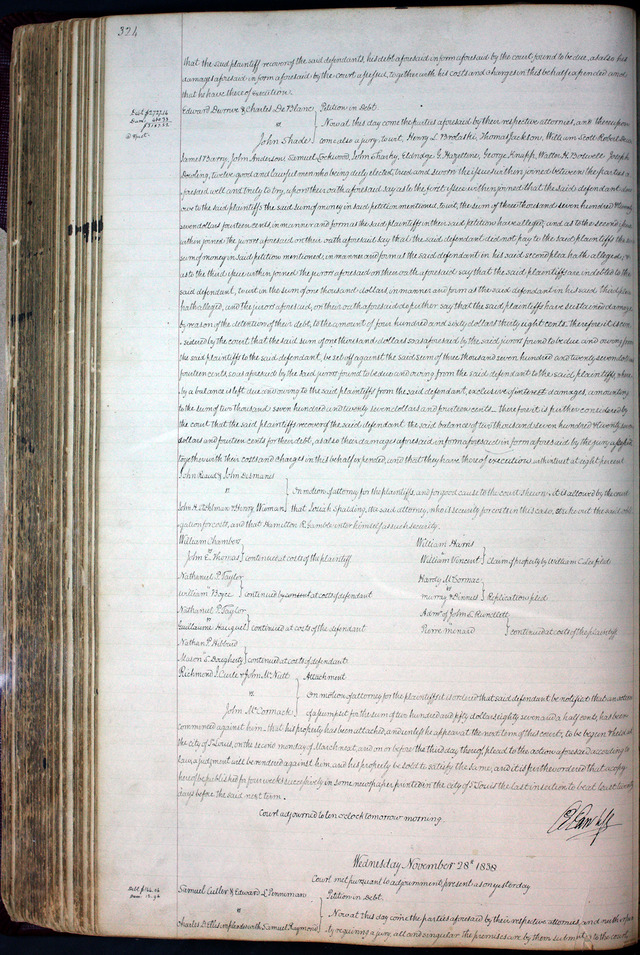 324
that the said plaintiff recover of the said defendants, his debt aforesaid in form aforesaid by the court found to be due, as also his
damages aforesaid in form aforesaid by the court assessed, together with his costs and charges in this behalf expended and
that he have thereof execution.
Edward & Charles De Blanc } Petition in Debt
vs Now at this day come the parties aforesaid by their respective attornies, and thereupon
John Shade come also a jury, to wit, Henry L. Brolaski, Thomas Jackson, William Scott, Robert
James Barry, John Anderson, Samuel Lockwood, John Sharby, Eldridge G. Hazeltine, George Knapp, Walton H. Boswell, Joseph
Dowling, twelve good and lawful men who being duly elected, tried and sworn the issues within joined between the parties a-
foresaid well and truly to try, upon their oath aforesaid say as to the first issue within joined that the said defendant does
owe to the said plaintiffs the said sum of money in said petition mentioned, to wit, the sum of three thousand seven hundred & twenty
seven dollars fourteen cents in manner and form as the said plaintiffs in their said petition have alleged, and as to the second issue
within joined the jurors aforesaid on their oath aforesaid say that the said defendant did not pay to the said plaintiffs the said
sum of money in said petition mentioned, in manner and form as the said defendant in his said second plea hath alleged,
as to the third issue within joined the jurors aforesaid on their oath aforesaid say that the said plaintiffs are indebted to the
said defendant, to wit in the sum of one thousand dollars in manner and form as the said defendant in his said third plea
hath alleged, and the jurors aforesaid, on their oath aforesaid do further say that the said plaintiffs have sustained damages
by reason of the detention of their debt, to the amount of four hundred and sixty dollars thirty eight cents. Therefore it is con-
sidered by the court that the said sum of one thousand dollars so as aforesaid by the said jurors found to be due and owing from
the said plaintiffs to the said defendant, be set off against the said sum of three thousand seven hundred and twenty seven dollars
fourteen cents, so as aforesaid by the said jurors found to be due and owing from the said defendant to the said plaintiffs where-
by a balance is left due and owing to the said plaintiffs from the said defendant, exclusive of interest & damages, amounting
to the sum of two thousand seven hundred and twenty seven dollars and fourteen cents. Therefore it is further considered by
the court that the said plaintiffs recover of the said defendant the said balance of two thousand seven hundred & twenty seven
dollars and fourteen cents for their debt, as also their damages aforesaid in form aforesaid in form aforesaid by the jury assessed
together with their costs and charges in this behalf expended, and that they have thereof execution with interest at eight per cent
John & John Desmarais
vs } On motion of attorney for the plaintiffs, and for good cause to the court shewn, it is allowed by the court
John H. Stohlman & Henry Wieman that Josiah Spalding, the said attorney, who is security for costs in this case, the said obli-
gation for costs, and that Hamilton R. Gamble enter himself as such security.
William Chambers
vs
John E. Thomas } continued at costs of the plaintiff
Nathaniel P. Taylor
vs
William Boyce } continued by consent at costs of defendant
Nathaniel P. Taylor
vs
Guillaume Hauquel } continued at costs of the defendant
Nathan P. Hibbard
vs
Mason S. Dougherty } continued at costs of defendant
William Harris
vs
William Vincent } claim of property by William C. filed
Hardy McCormac
vs
Murray & Dinnies } Replication filed
Admr. of John S. Rundlett
vs
Pierre Menard } continued at costs of the plaintiff
Richmond J. Curle & John McNutt } Attachment
vs On motion of attorney for the plaintiffs it is ordered that said defendant be notified that an action
John McCormack of assumpsit for the sum of two hundred and fifty dollars eighty seven and a half cents, has been
commenced against him, that his property has been attached, and unless he appear at the next term of this court, to be begun & held at
the city of St Louis, on the second monday of March next, and on or before the third day thereof, plead to the action aforesaid according to
law a judgment will be rendered against him and his property be sold to satisfy the same, and it is further ordered that a copy
hereof be published for four weeks successively in some newspaper printed in the city of St Louis the last insertion to be at least twenty
days before the said next term.
Court adjourned to ten o'clock tomorrow morning.
Wednesday November 28th 1838
Court met pursuant to adjournment, present as on yesterday
Samuel Cutler & Edward L. Penniman } Petition in Debt.
vs Now at this day come the parties aforesaid by their respective attornies, and neither par-
Charles impleaded with Samuel Raymond ty requiring a jury, all and singular the premises are by them submitted to the court